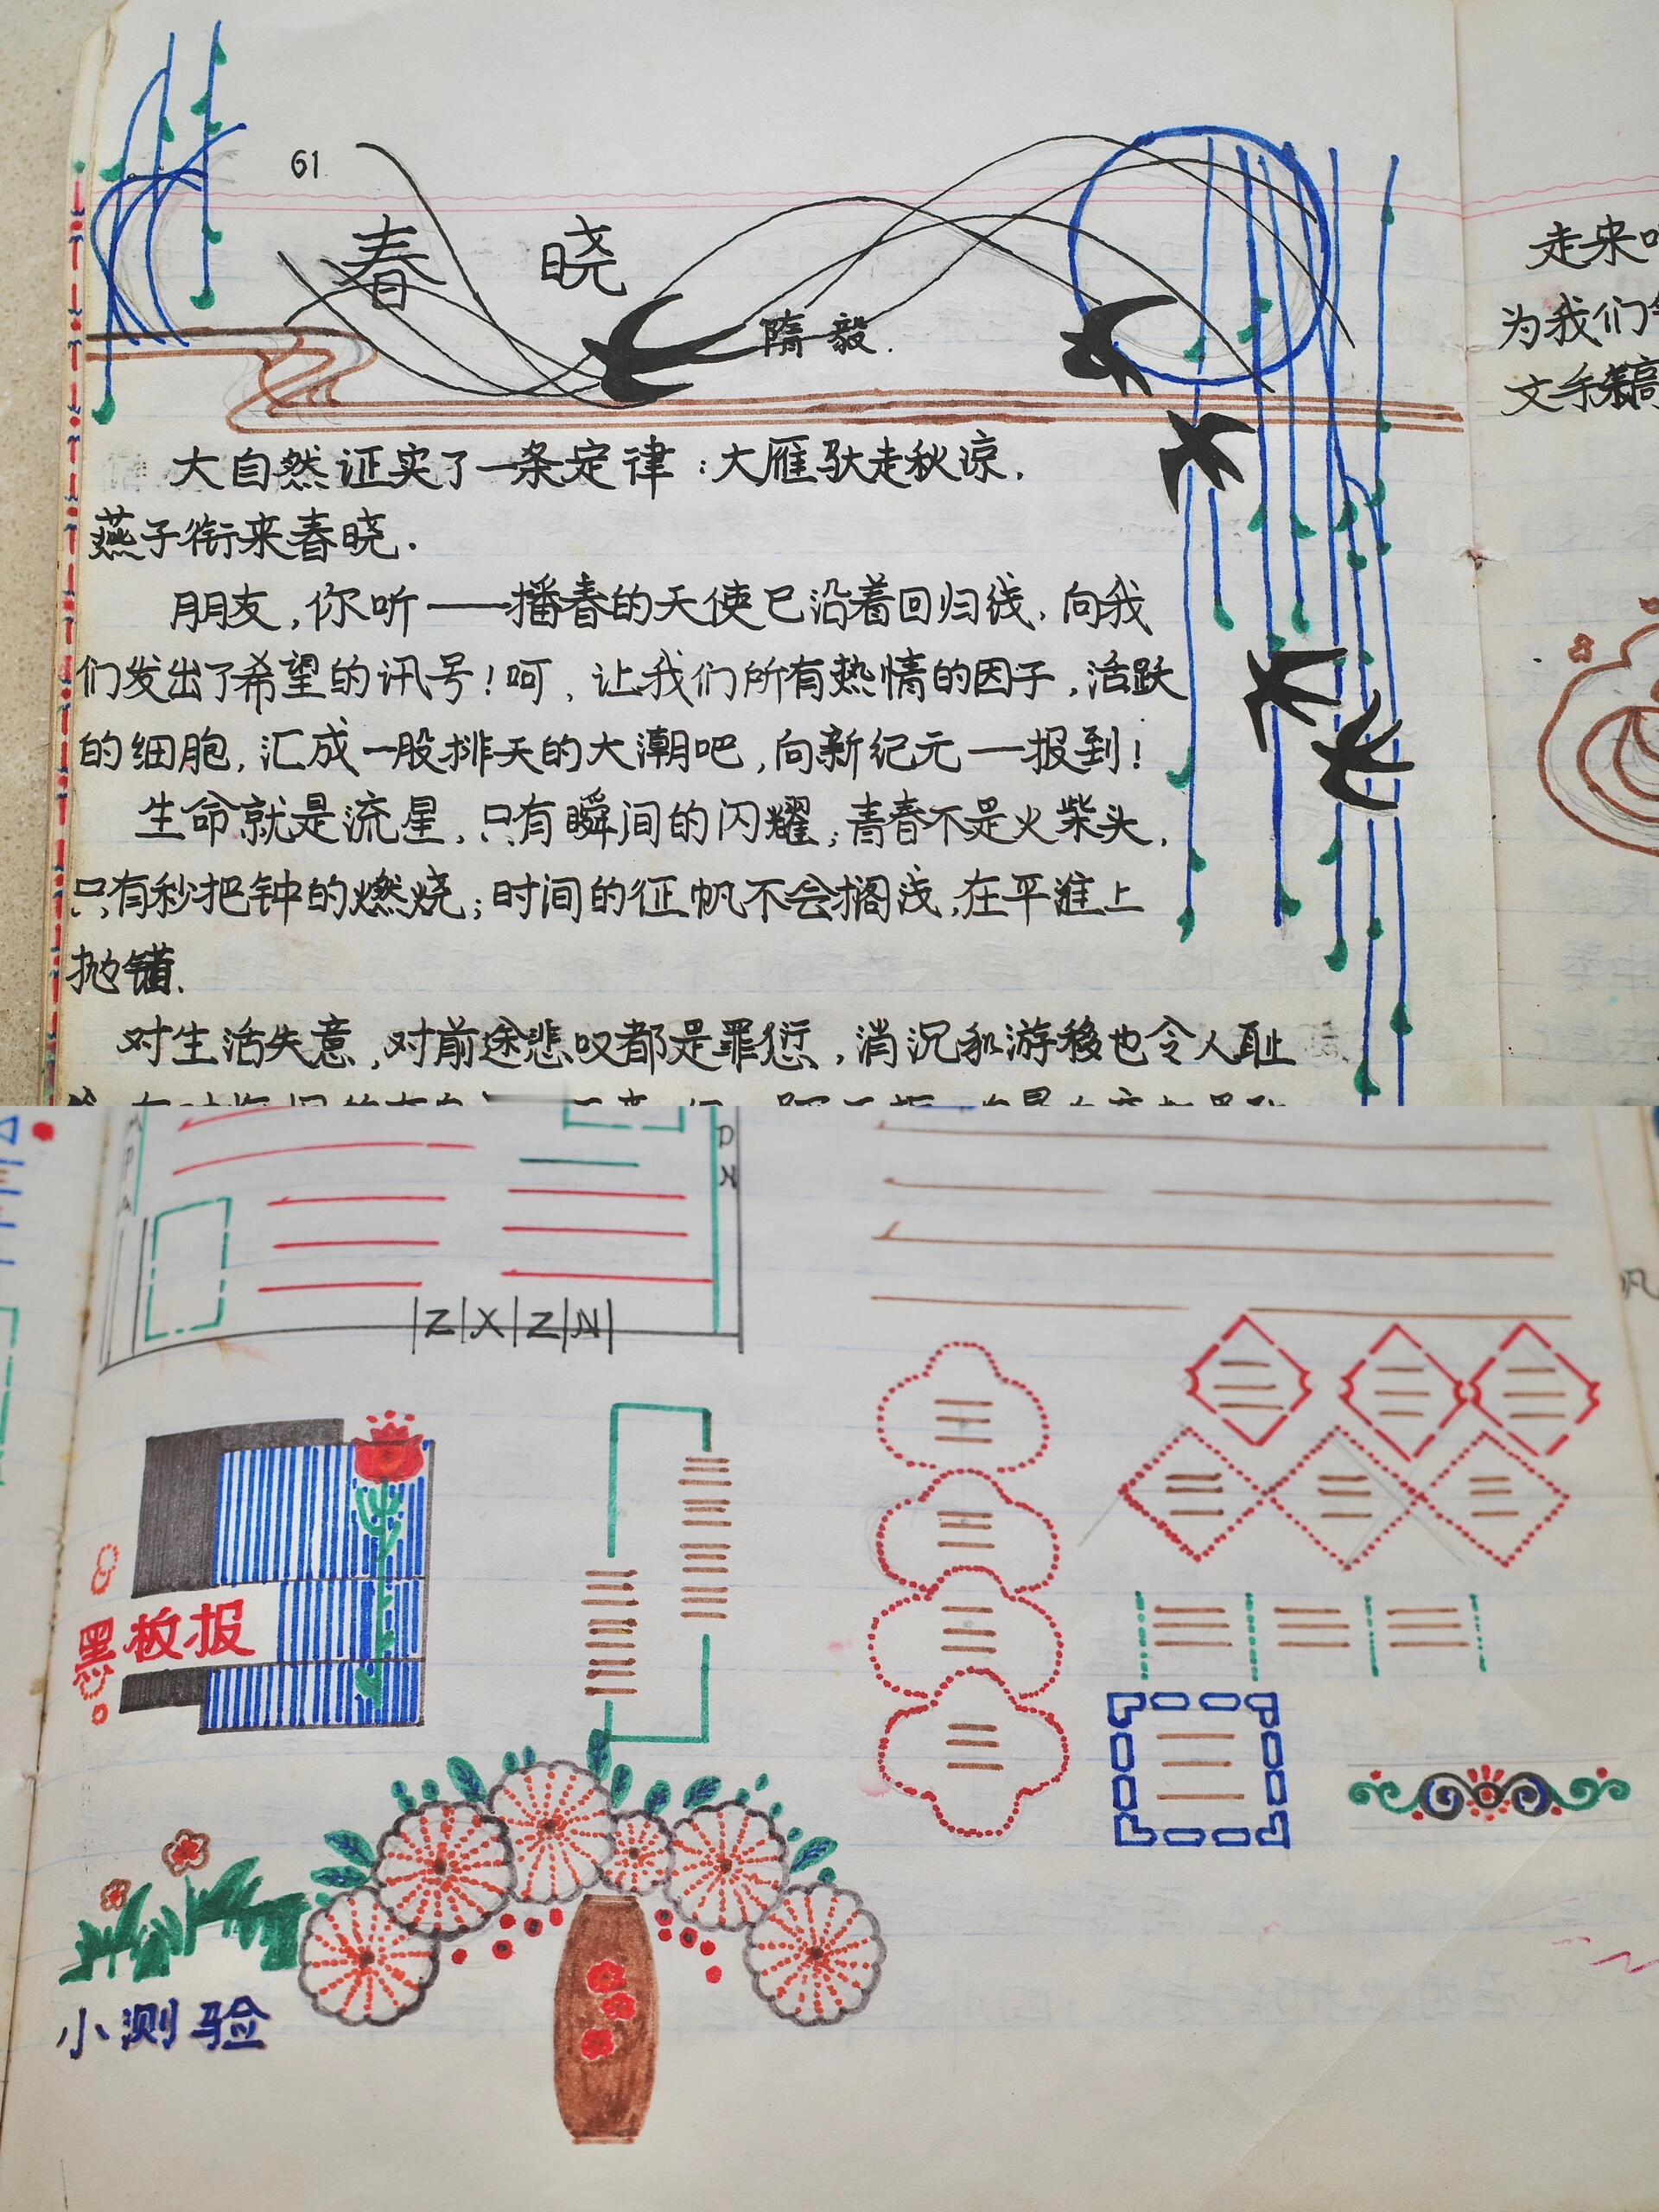 61
春 晓
隋毅.
大自然证实了一条定律：大雁驮走秋凉.
燕子衔来春晓.
朋友,你听——播春的天使已沿着回归线,向我
们发出了希望的讯号!呵,让我们所有热情的因子,活跃
的细胞,汇成一股排天的大潮吧,向新纪元——报到!
生命就是流星,只有瞬间的闪耀;青春不是火柴头,
只有秒把钟的燃烧;时间的征帆不会搁浅,在平滩上
抛锚.
对生活失意,对前途悲叹都是罪愆,消沉和游移也令人耻
走来
为我们
文手稿
P
A
D
N
Z X Z N
黑板报
小测验